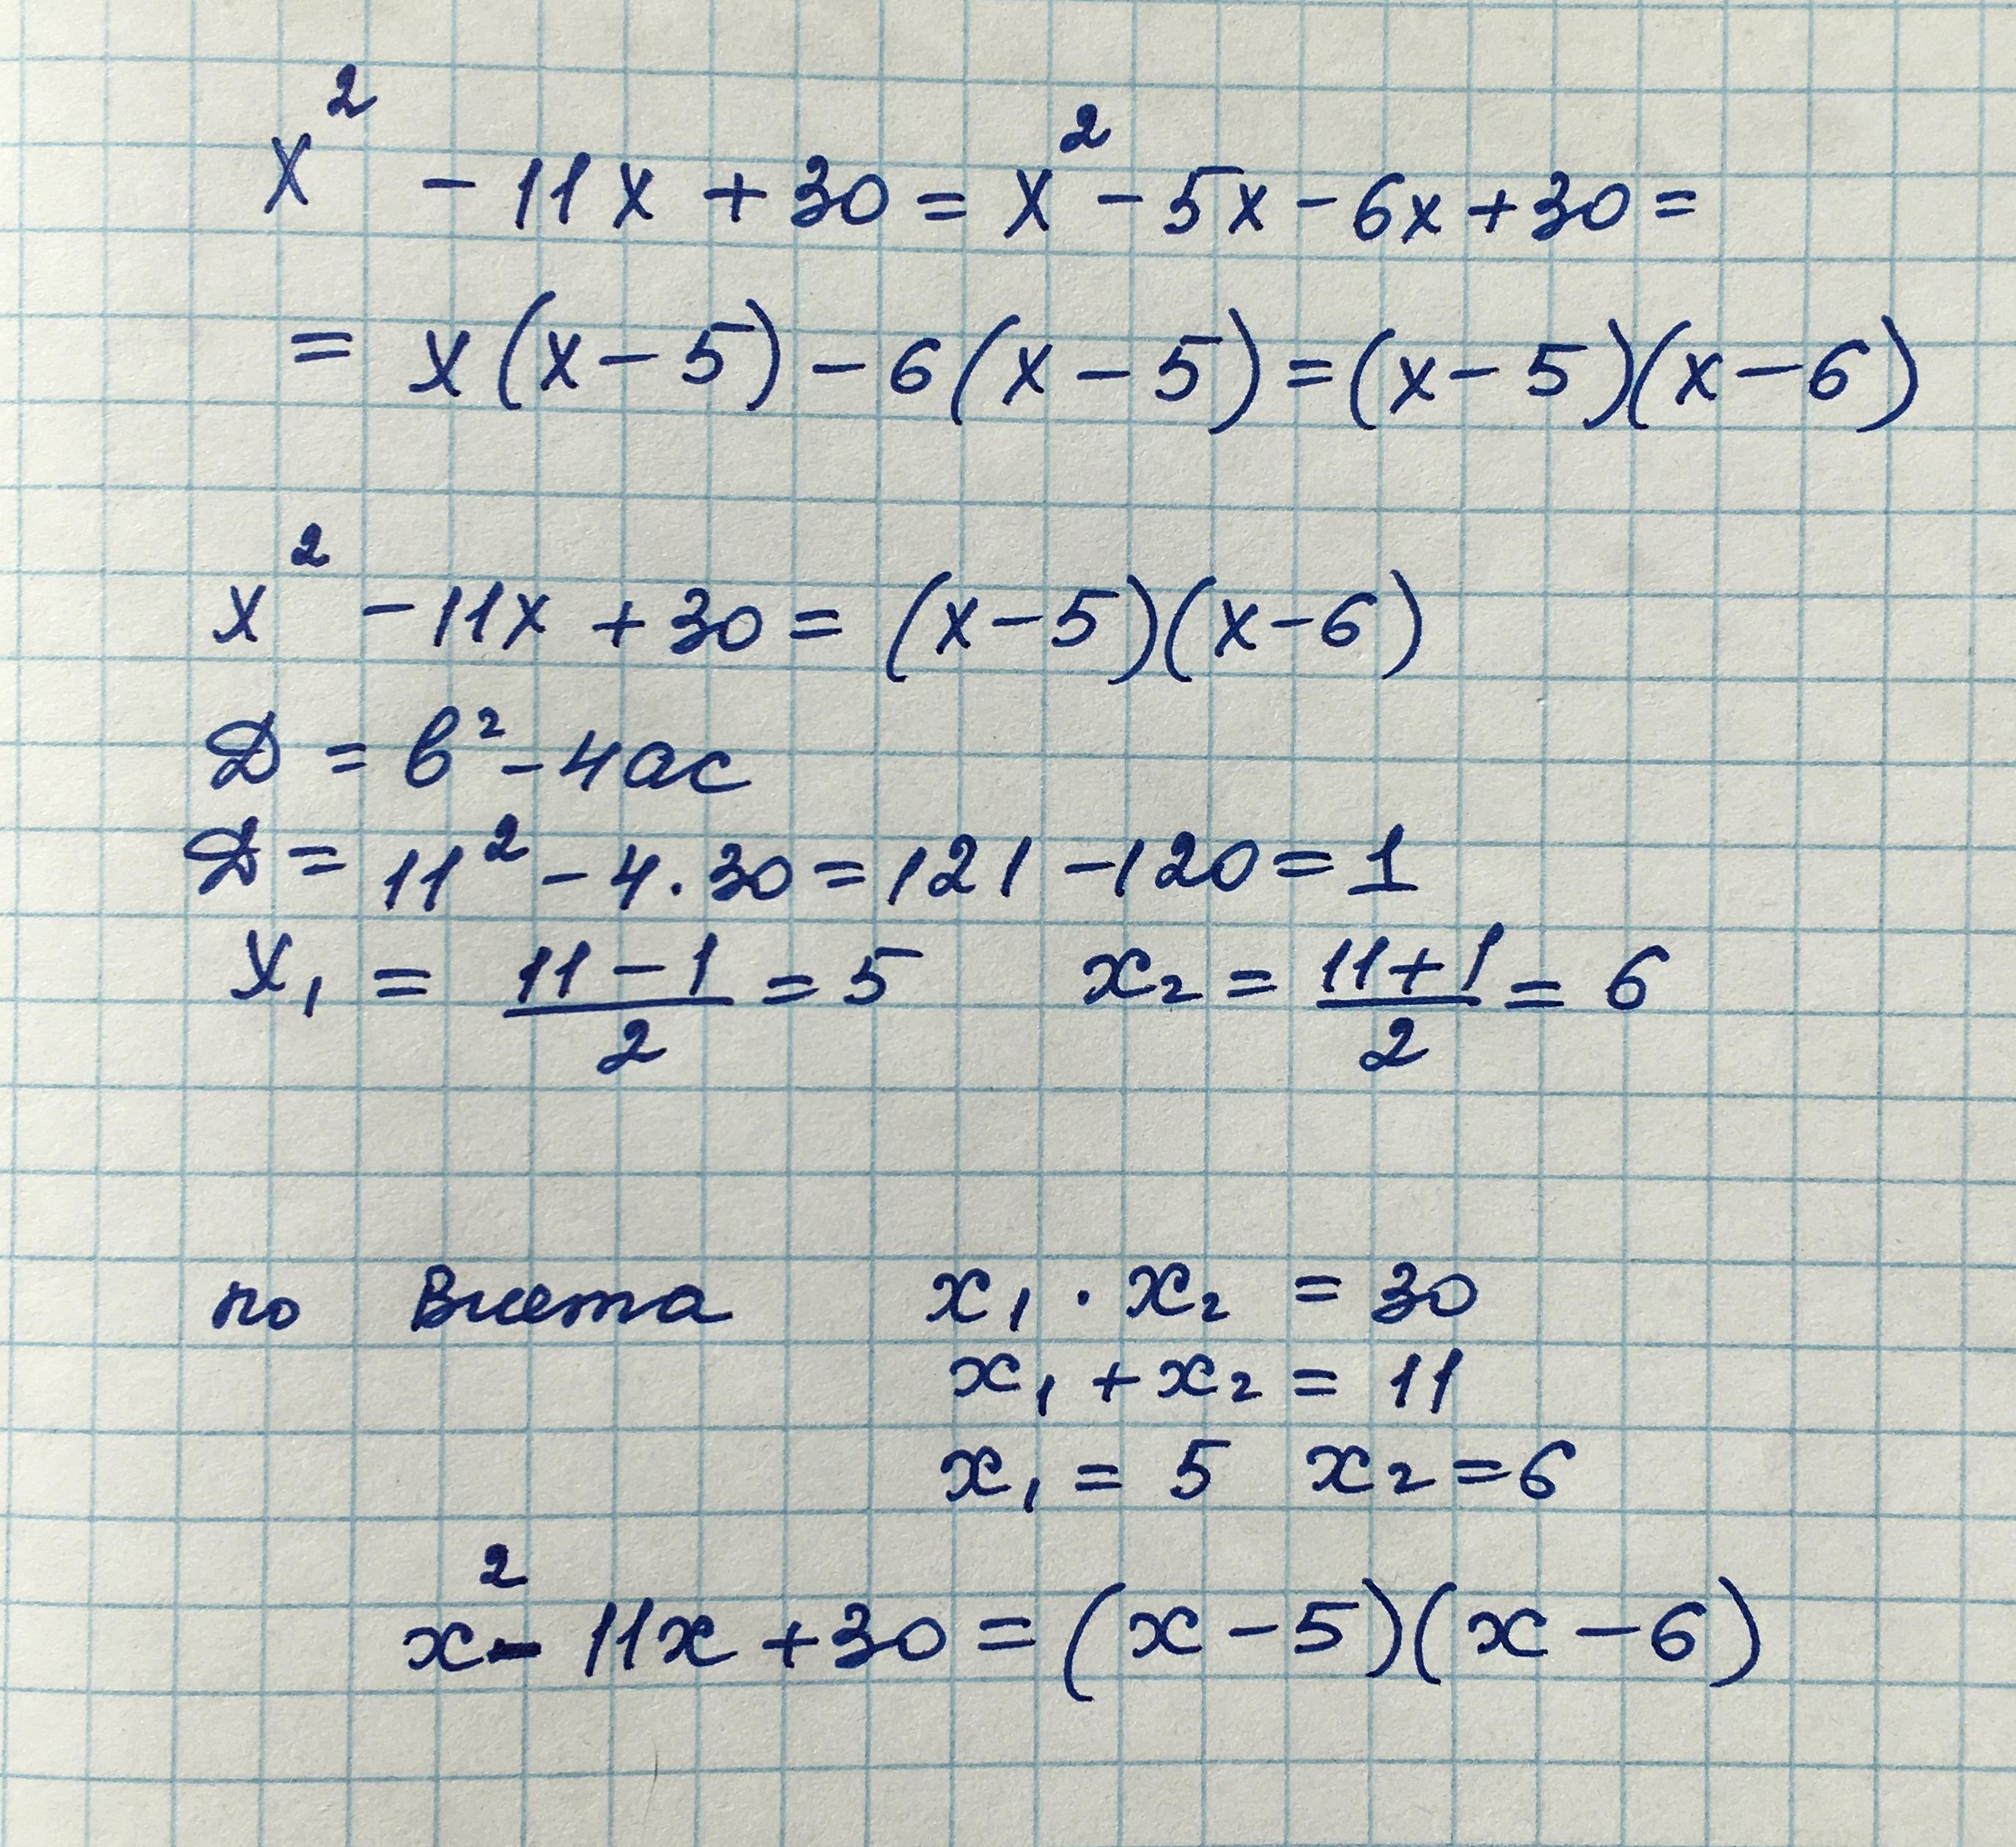 x² - 11x + 30 = x² - 5x - 6x + 30 =
= x(x - 5) - 6(x - 5) = (x - 5)(x - 6)
x² - 11x + 30 = (x - 5)(x - 6)
Д = в² - 4ac
Д = 11² - 4 · 30 = 121 - 120 = 1
x₁ = (11 - 1)/2 = 5    x₂ = (11 + 1)/2 = 6
по Виета    x₁ · x₂ = 30
x₁ + x₂ = 11
x₁ = 5    x₂ = 6
x² - 11x + 30 = (x - 5)(x - 6)